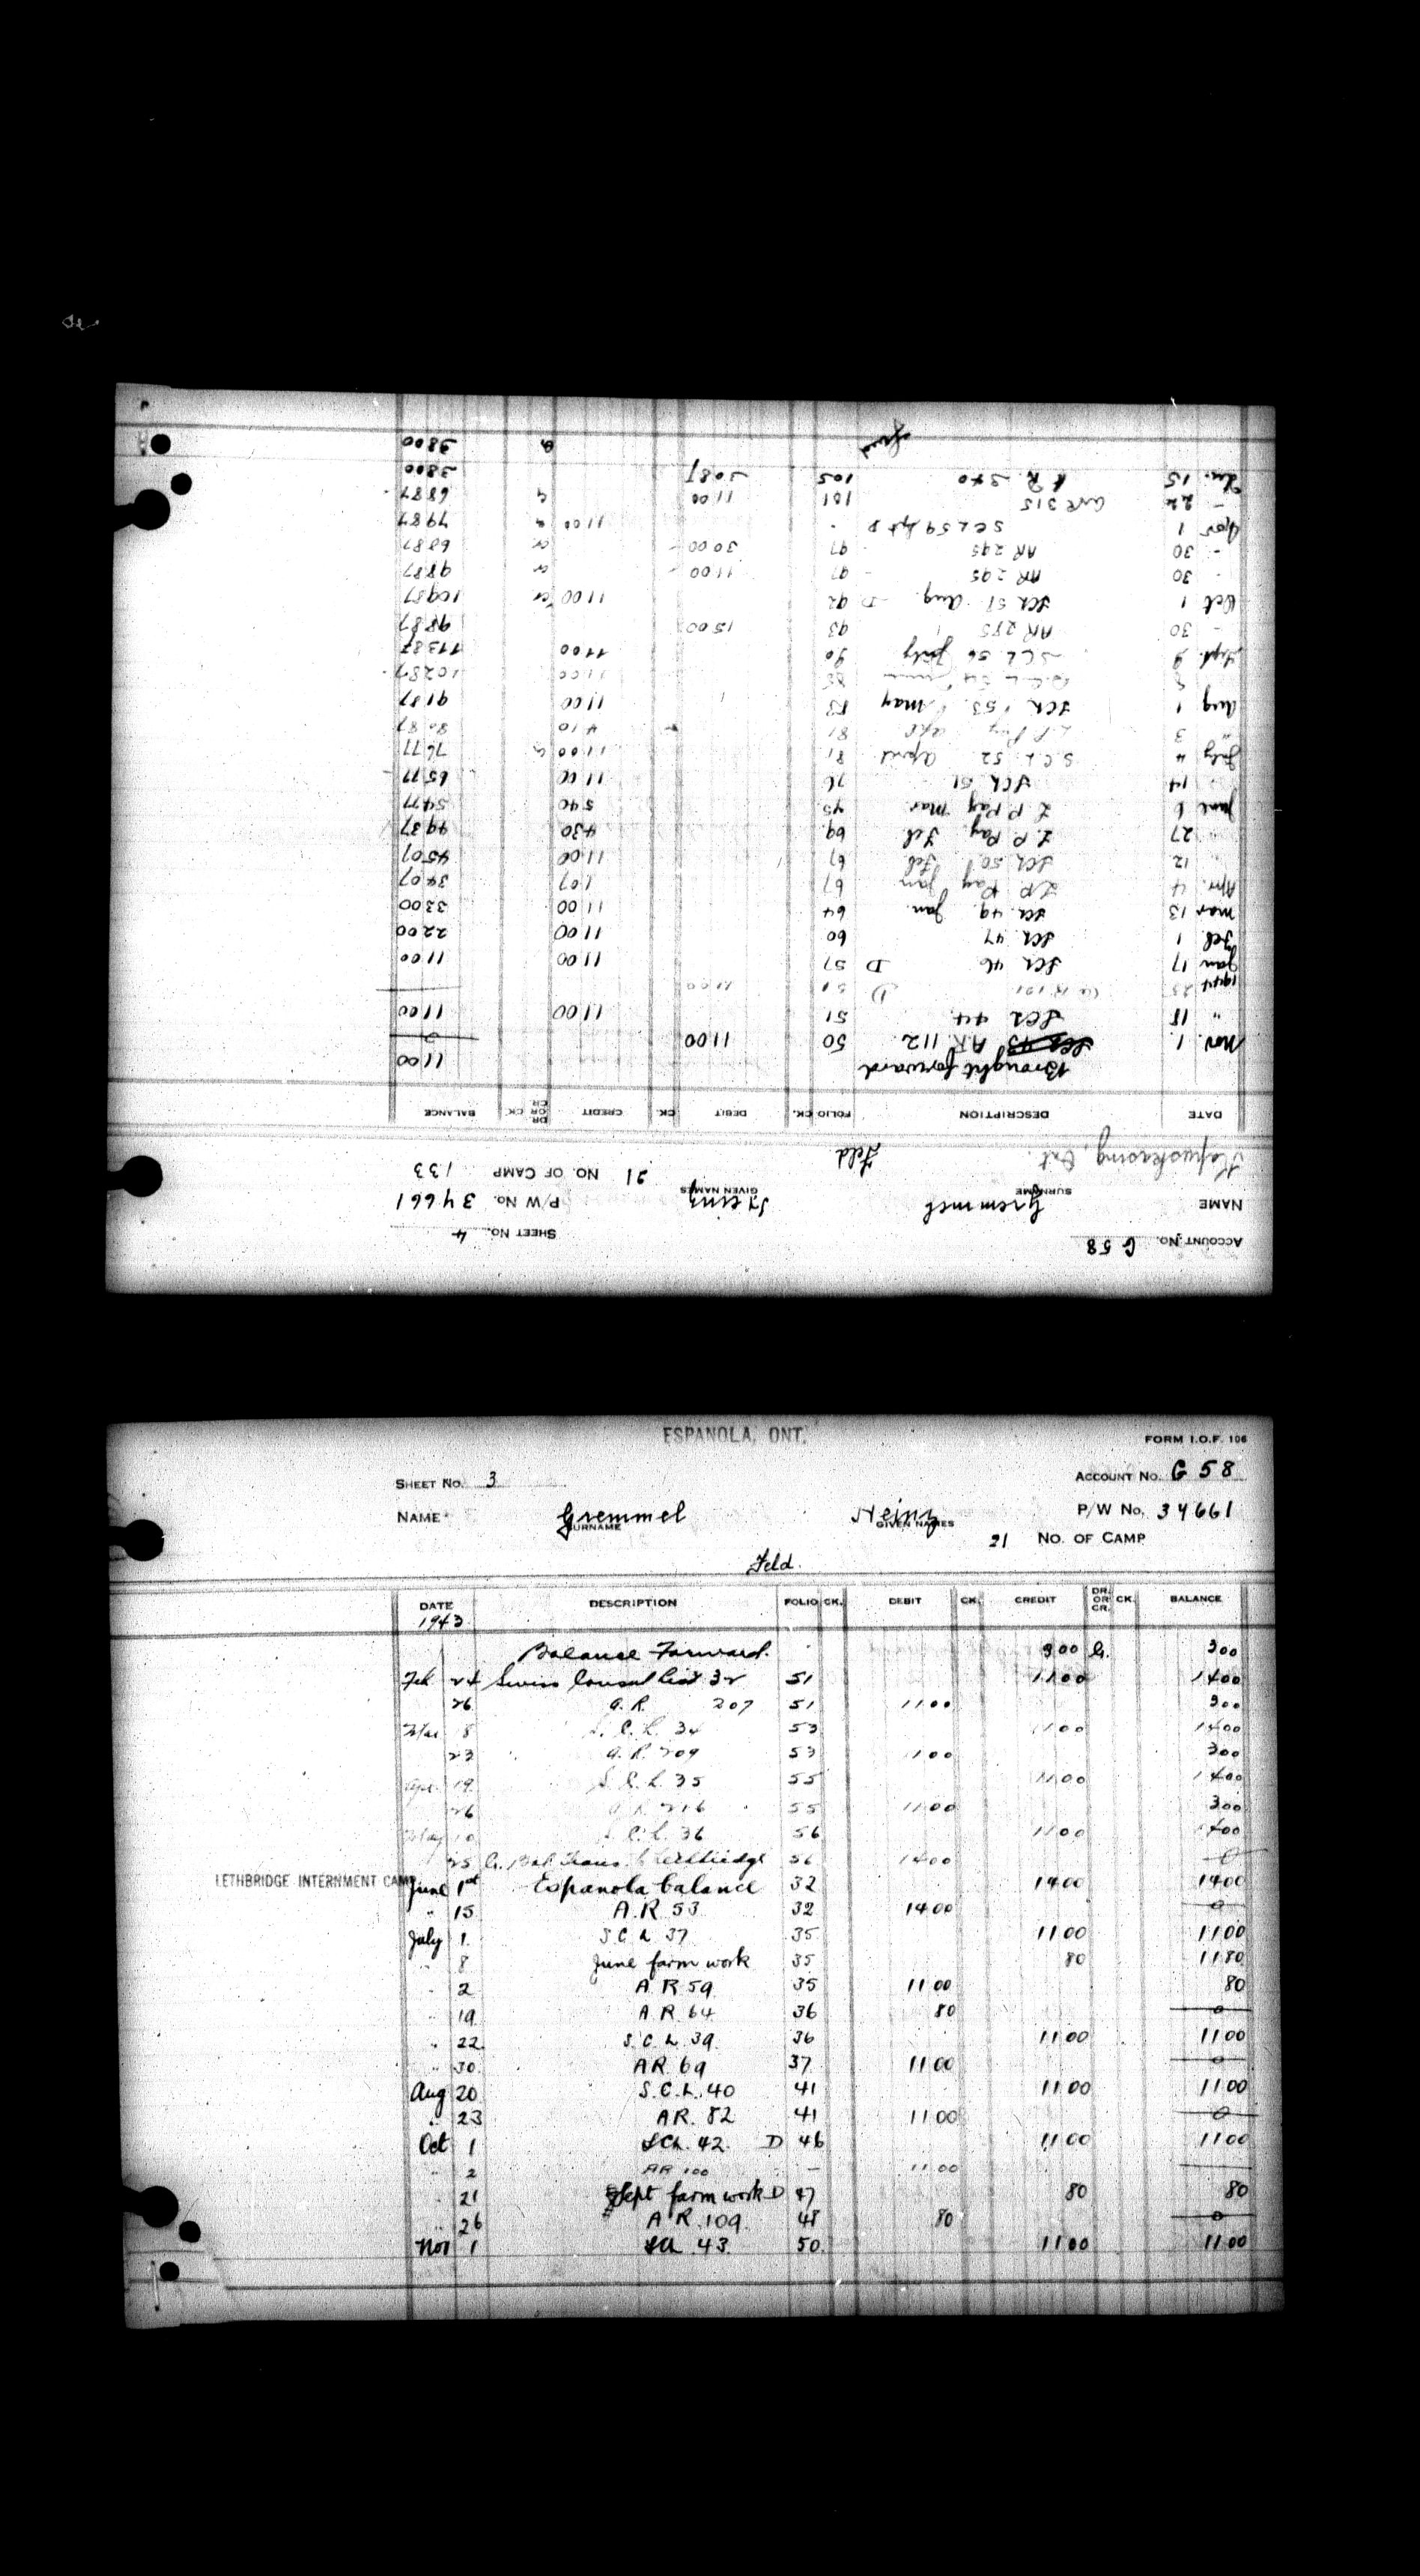 ACCOUNT No. G 58 SHEET No. 4
NAME Gremmel Heinz P/W No. 34661
SURNAME GIVEN NAMES
21 No. OF CAMP 133
Kapuskasing, Ont. Feld
DATE DESCRIPTION FOLIO CK. DEBIT CK. CREDIT DR. OR CR. CK. BALANCE
Brought forward 11 00
Nov. 1 AR 112 50 11 00 0
" 18 SCL 44 51 11 00 11 00
1944 25 51 11 00
Jan 17 SCL 46 D 57 11 00 11 00
Feb. 1 SCL 47 60 11 00 22 00
Mar 13 SCL 49 Jan. 64 11 00 33 00
Apr. 4 L.P. Pay Jan 67 1 07 34 07
" 12 SCL 50 Feb 67 11 00 45 07
" 27 L.P. Pay Feb 69 4 30 49 37
June 6 L P Pay Mar. 75 5 40 54 77
14 SCL 51 76 11 00 65 77
July 4 S.C.L. 52 April 81 11 00 76 77
" 3 81 4 10 80 87
Aug 1 SCL 53 May 83 11 00 91 87
85 11 00 102 87
Sept. 9 SCL 56 July 90 11 00 113 87
- 30 AR 285 93 15 00 98 87
Oct 1 SCL 57 Aug. D 92 11 00 109 87
30 AR 295 97 11 00 98 87
- 30 AR 295 97 30 00 68 87
Nov 1 SCL 59 Sept D 11 00 79 87
- 22 AR 315 101 11 00 68 87
15 AR 340 105 30 87 38 00
38 00
ESPANOLA, ONT.
FORM I.O.F. 106
SHEET No. 3 ACCOUNT No. G 58
NAME Gremmel Heinz P/W No. 34661
SURNAME GIVEN NAMES
21 No. OF CAMP
Feld.
DATE DESCRIPTION FOLIO CK. DEBIT CK. CREDIT DR. OR CR. CK. BALANCE
1943
Balance Forward. 3 00 Cr. 3 00
Feb 24 Swiss Consul List 32 51 11 00 14 00
26 A.R. 207 51 11 00 3 00
Mar 8 S.C.L. 34 53 11 00 14 00
23 A.R. 209 53 11 00 3 00
Apr. 19 S.C.L. 35 55 11 00 14 00
26 A.R. 216 55 11 00 3 00
May 10 S.C.L. 36 56 11 00 14 00
25 Cr. Bal. Trans. Lethbridge 56 14 00 0
LETHBRIDGE INTERNMENT CAMP
June 1st Espanola balance 32 14 00 14 00
" 15 A.R. 53 32 14 00 0
July 1 S.C.L. 37 35 11 00 11 00
" 8 June farm work 35 80 11 80
" 2 A.R. 59 35 11 00 80
" 19 A.R. 64 36 80 0
" 22 S.C.L. 39 36 11 00 11 00
" 30 AR. 69 37 11 00 0
Aug 20 S.C.L. 40 41 11 00 11 00
" 23 AR. 82 41 11 00 0
Oct 1 SCL. 42. D 46 11 00 11 00
" 2 AR 100 - 11 00
" 21 Sept farm work D 47 80 80
" 26 A R. 109 48 80 0
Nov 1 SCL 43. 50 11 00 11 00